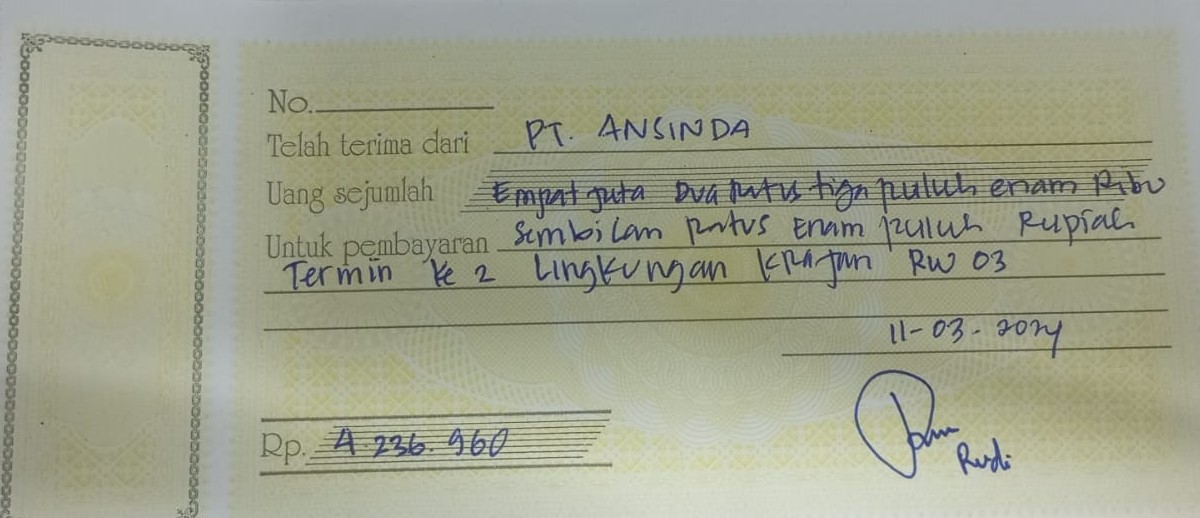 No.
Telah terima dari PT. ANSINDA
Uang sejumlah Empat juta Dua ratus tiga puluh enam Ribu
Untuk pembayaran Sembilan ratus Enam puluh Rupiah
Termin ke 2 Lingkungan KRAJAN RW 03
11-03-2024
Rp. 4.236.960
Rudi